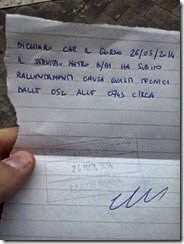 DICHIARO CHE IL GIORNO 26/03/2014
IL SERVIZIO METRO B/B1 HA SUBITO
RALLENTAMENTI CAUSA GUASTI TECNICI
DALLE 052 ALLE 0745 CIRCA
26 MAR 2014